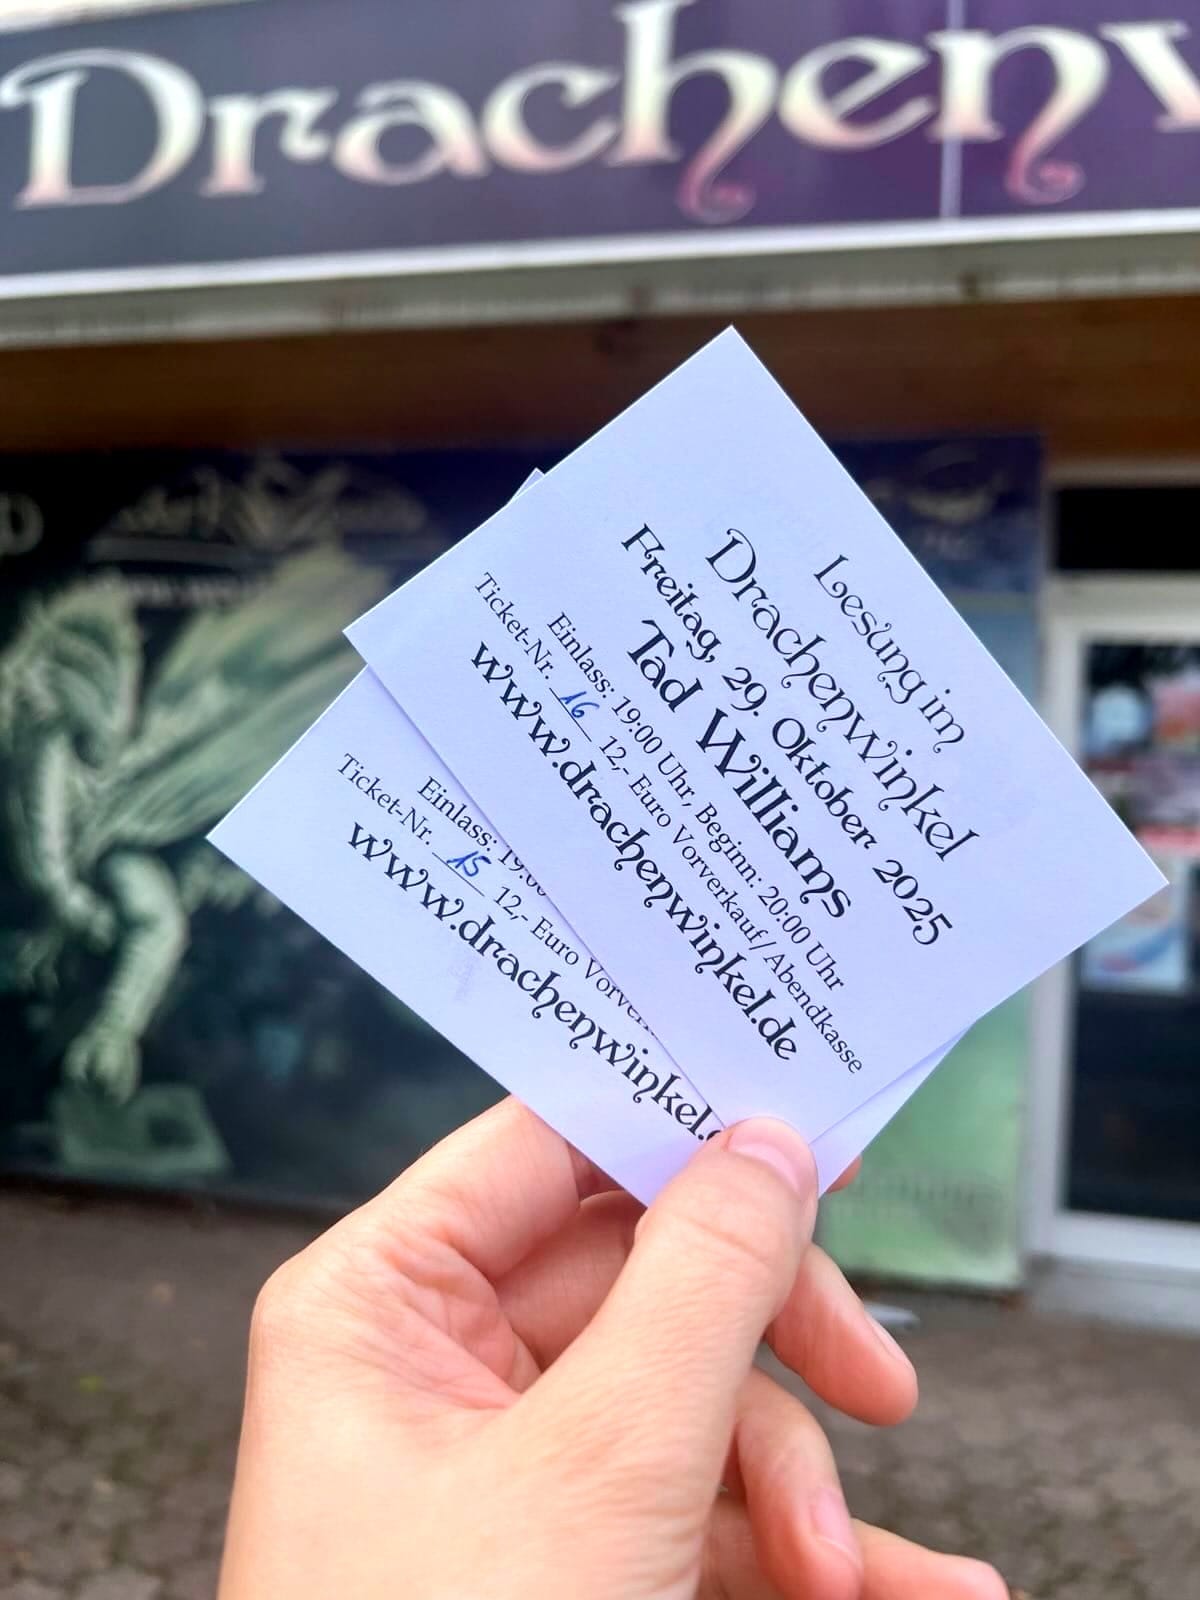 Drachenw
Lesung im
Drachenwinkel
Freitag, 29. Oktober 2025
Tad Williams
Einlass: 19:00 Uhr, Beginn: 20:00 Uhr
Ticket-Nr. 16 12,- Euro Vorverkauf/Abendkasse
www.drachenwinkel.de
Einlass: 19:00
Ticket-Nr. 15 12,- Euro Vorver
www.drachenwinkel.